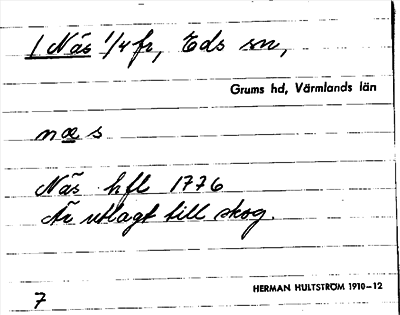 1 Näs 1/4 fr, Eds sn,
Grums hd, Värmlands län
næs
Näs hfl 1776
Är utlagt till skog.
HERMAN HULTSTRÖM 1910–12
7